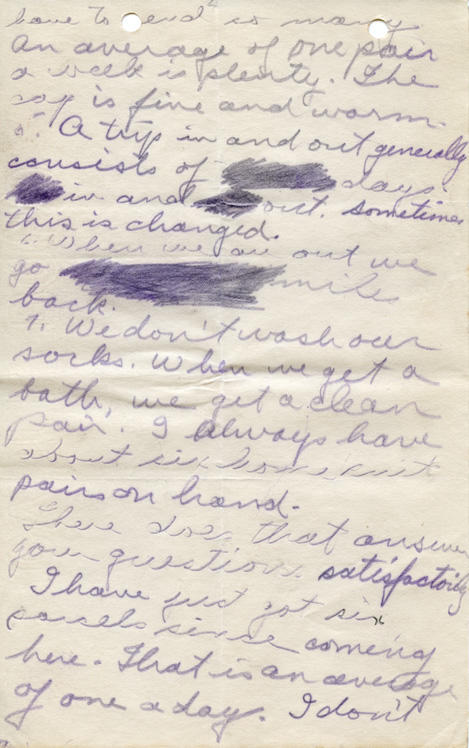 have to send so many.
An average of one pair
a week is plenty. The
cap is fine and warm.
5. A trip in and out generally
consists of days.
in and out. sometimes
this is changed.
6. When we are out we
go miles
back.
7. We don't wash our
socks. When we get a
bath, we get a clean
pair. I always have
about six home knit
pairs on hand.
There does that answer
your questions satisfactorily
I have just got six
parcels since coming
here. That is an average
of one a day. I don't